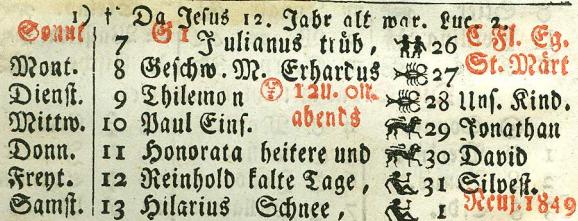 1) † Da Jesus 12. Jahr alt war. Luc. 2.
Sonnt 7 G 1 Julianus trüb, 26 C Fl. Eg.
Mont. 8 Geschw. M. Erhardus 27 St. Märt
Dienst. 9 Thilemon 12 U. on. 28 Uns. Kind.
Mittw. 10 Paul Eins. abends 29 Jonathan
Donn. 11 Honorata heitere und 30 David
Freyt. 12 Reinhold kalte Tage, 31 Silvest.
Samst. 13 Hilarius Schnee, 1 Neuj. 1849